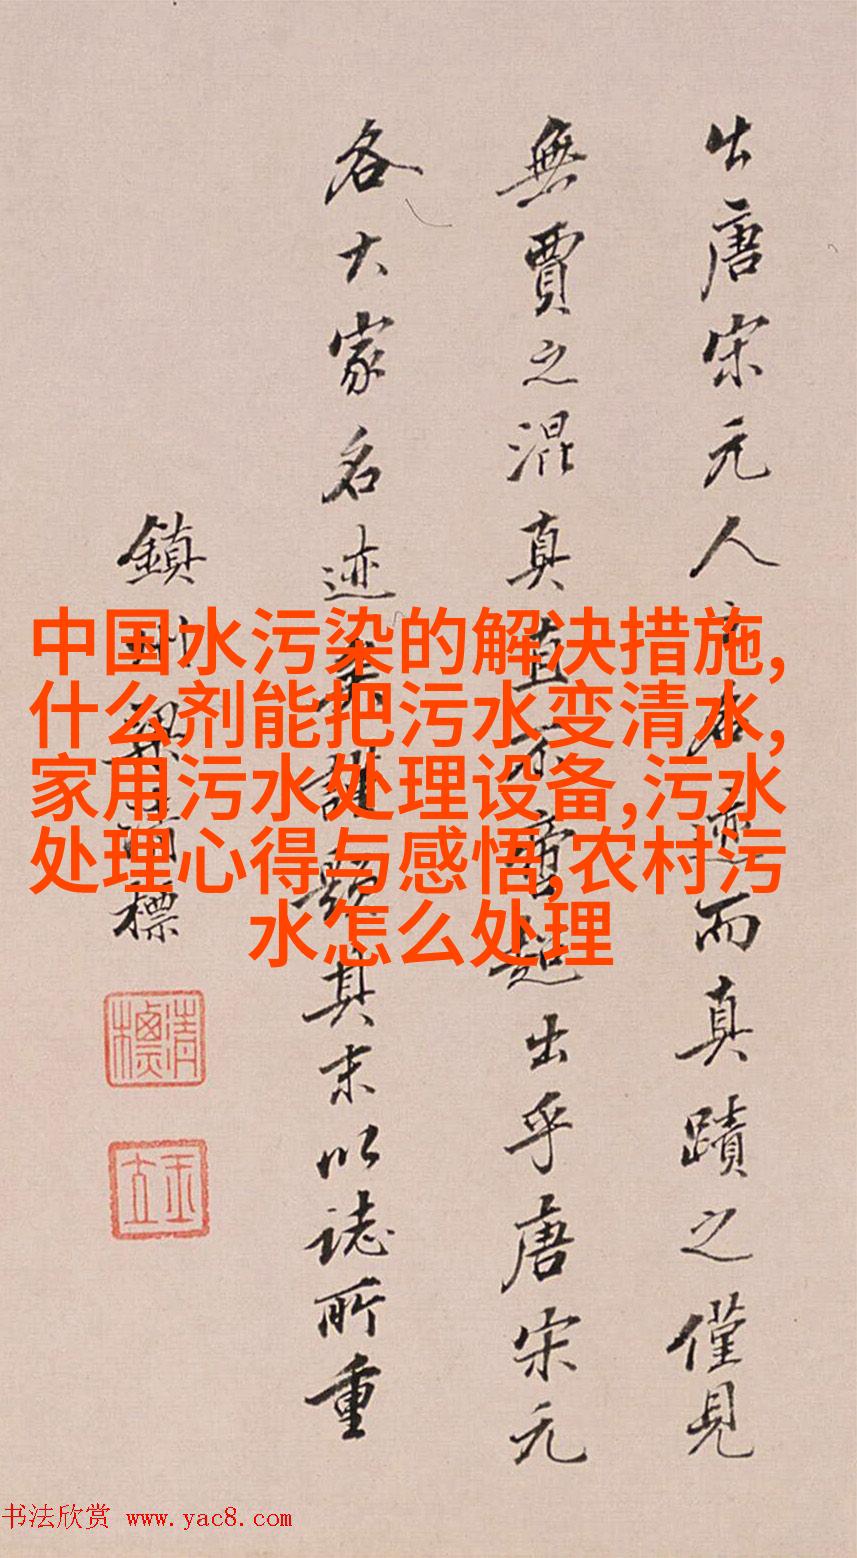 出唐宋元人之名迹而真蹟之僅見
無賈之混真直不啻超出乎唐宋元
各大家名迹矣謹題其末以誌所重
鎮州梁清標
中国水污染的解决措施,
什么剂能把污水变清水,
家用污水处理设备,污水
处理心得与感悟,农村污
水怎么处理
书法欣赏 www.yac8.com